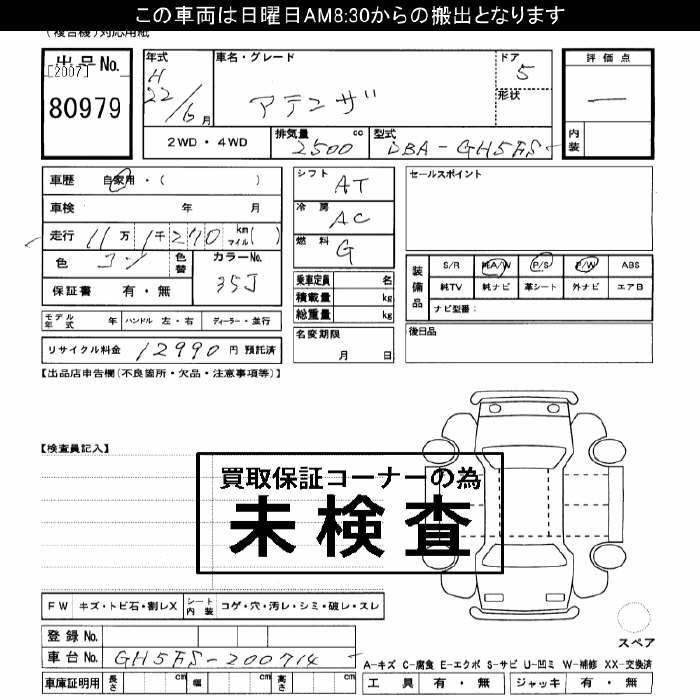 この車両は日曜日AM8:30からの搬出となります
(複合機)対応用紙
出品No.
[2007]
80979
年式
H
22/6月
車名・グレード
アテンザ
ドア
5
形状
評価点
—
内装
2WD・4WD
排気量 cc
2500
型式
DBA-GH5FS
車歴 自家用・( )
車検 年 月
走行 11万1千270 km マイル( )
色 コン 色替 カラーNo.
35J
保証書 有・無
モデル年式 年 ハンドル 左・右 ディーラー・並行
リサイクル料金 12990 円 預託済
シフト AT
冷房 AC
燃料 G
乗車定員 名
積載量 kg
総重量 kg
名変期限
月 日
セールスポイント
装備品
S/R 純A/W P/S P/W ABS
純TV 純ナビ 革シート 外ナビ エアB
ナビ型番:
後日品
【出品店申告欄(不良箇所・欠品・注意事項等)】
【検査員記入】
買取保証コーナーの為
未検査
FW キズ・トビ石・割レX シート内装 コゲ・穴・汚レ・シミ・破レ・スレ
登録No.
車台No. GH5FS-200714
車庫証明用 長さ cm 幅 cm 高さ cm
スペア
A-キズ C-腐食 E-エクボ S-サビ U-凹ミ W-補修 XX-交換済
工具 有・無 ジャッキ 有・無